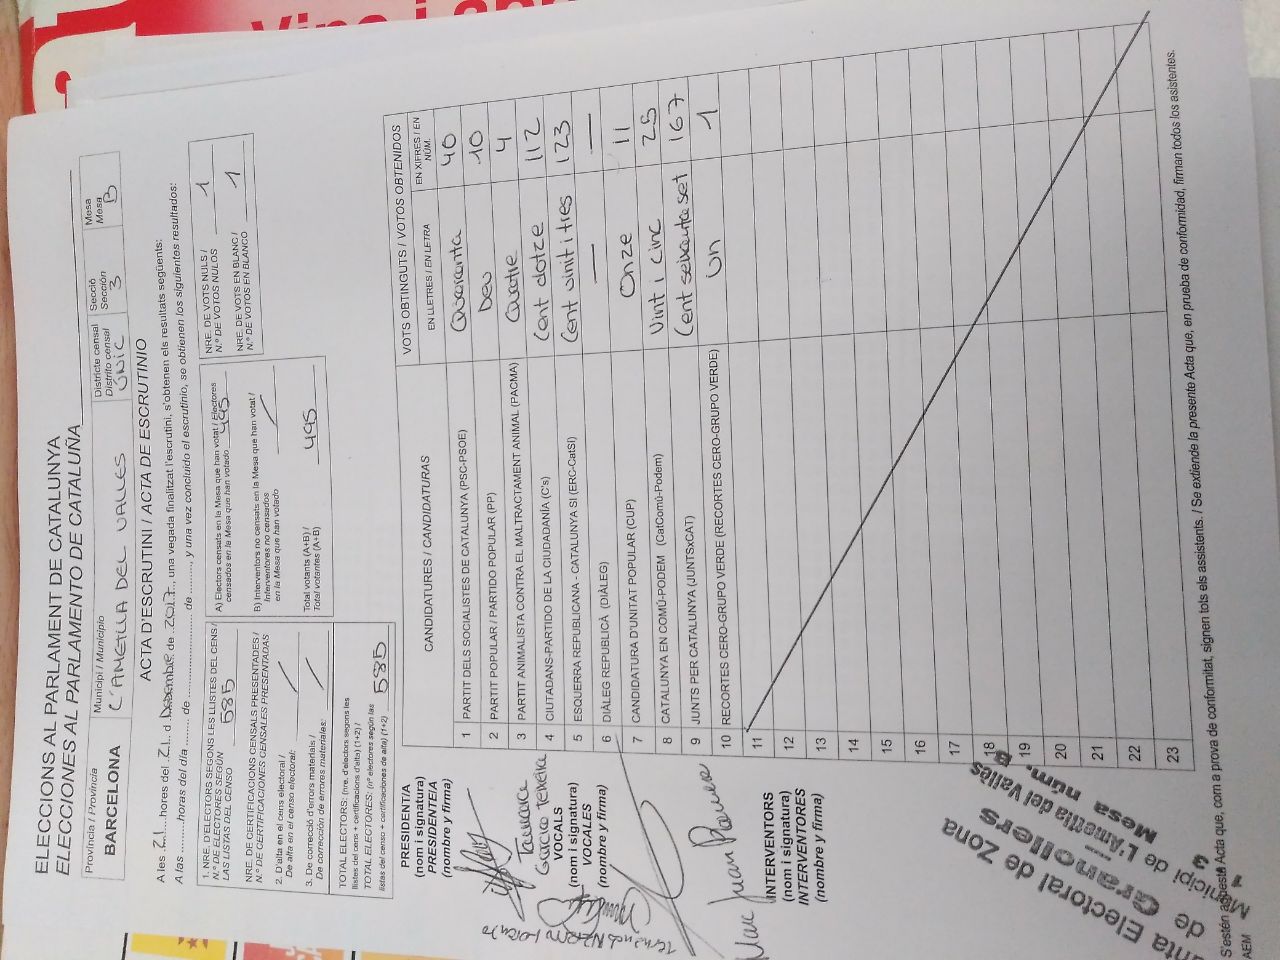 ELECCIONS AL PARLAMENT DE CATALUNYA
ELECCIONES AL PARLAMENTO DE CATALUÑA
Província / Provincia
BARCELONA
Municipi / Municipio
L'AMETLLA DEL VALLES
Districte censal
Distrito censal
ÚNIC
Secció
Sección
3
Mesa
Mesa
B
ACTA D'ESCRUTINI / ACTA DE ESCRUTINIO
A les 21 hores del 21 d Desembre de 2017, una vegada finalitzat l'escrutini, s'obtenen els resultats següents:
A las .........horas del día ........ de ........................ de ........, y una vez concluido el escrutinio, se obtienen los siguientes resultados:
1. NRE. D'ELECTORS SEGONS LES LLISTES DEL CENS /
N.º DE ELECTORES SEGÚN
LAS LISTAS DEL CENSO 585
NRE. DE CERTIFICACIONS CENSALS PRESENTADES /
N.º DE CERTIFICACIONES CENSALES PRESENTADAS
2. D'alta en el cens electoral /
De alta en el censo electoral:
3. De correcció d'errors materials /
De corrección de errores materiales:
TOTAL ELECTORS: (nre. d'electors segons les
llistes del cens + certificacions d'alta) (1+2) /
TOTAL ELECTORES: (nº electores según las
listas del censo + certificaciones de alta) (1+2) 585
A) Electors censats en la Mesa que han votat / Electores
censados en la Mesa que han votado 495
B) Interventors no censats en la Mesa que han votat /
Interventores no censados
en la Mesa que han votado
Total votants (A+B) /
Total votantes (A+B) 495
NRE. DE VOTS NULS /
N.º DE VOTOS NULOS 1
NRE. DE VOTS EN BLANC /
N.º DE VOTOS EN BLANCO 1
PRESIDENT/A
(nom i signatura)
PRESIDENTE/A
(nombre y firma)
Garcia Teixeira
VOCALS
(nom i signatura)
VOCALES
(nombre y firma)
Marc Juan
INTERVENTORS
(nom i signatura)
INTERVENTORES
(nombre y firma)
CANDIDATURES / CANDIDATURAS
VOTS OBTINGUTS / VOTOS OBTENIDOS
EN LLETRES / EN LETRA
EN XIFRES / EN NÚM.
1 PARTIT DELS SOCIALISTES DE CATALUNYA (PSC-PSOE) Quaranta 40
2 PARTIT POPULAR / PARTIDO POPULAR (PP) Deu 10
3 PARTIT ANIMALISTA CONTRA EL MALTRACTAMENT ANIMAL (PACMA) Quatre 4
4 CIUTADANS-PARTIDO DE LA CIUDADANÍA (C's) Cent dotze 112
5 ESQUERRA REPUBLICANA - CATALUNYA SI (ERC-CatSI) Cent vint i tres 123
6 DIÀLEG REPUBLICÀ (DIÀLEG) — —
7 CANDIDATURA D'UNITAT POPULAR (CUP) Onze 11
8 CATALUNYA EN COMÚ-PODEM (CatComú-Podem) Vint i cinc 25
9 JUNTS PER CATALUNYA (JUNTSxCAT) Cent seixanta set 167
10 RECORTES CERO-GRUPO VERDE (RECORTES CERO-GRUPO VERDE) Un 1
11
12
13
14
15
16
17
18
19
20
21
22
23
Electoral de Zona
de Granollers
Municipi de L'Ametlla del Vallès
1 - 3 Mesa núm. B
S'estén aquesta Acta que, com a prova de conformitat, signen tots els assistents. / Se extiende la presente Acta que, en prueba de conformidad, firman todos los asistentes.
AEM